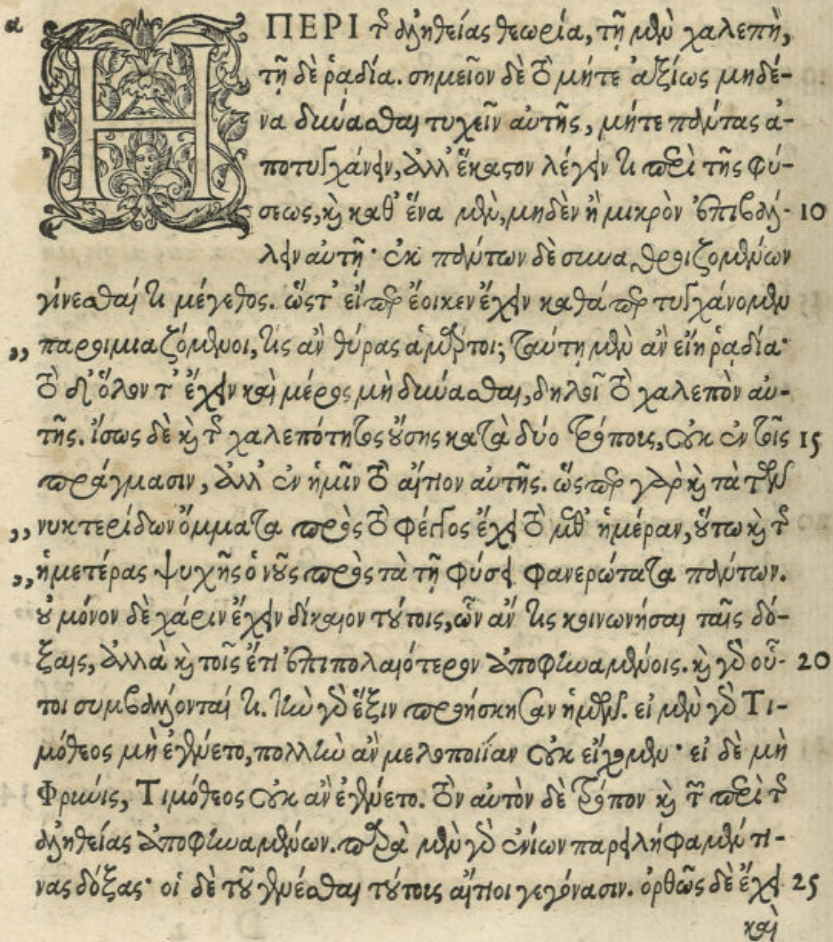 α Η ΠΕΡΙ τῆς ἀληθείας θεωρία, τῇ μὲν χαλεπὴ,
τῇ δὲ ῥαδία. σημεῖον δὲ τὸ μήτε ἀξίως μηδέ-
να δύνασθαι τυχεῖν αὐτῆς, μήτε πάντας ἀ-
ποτυγχάνειν, ἀλλ' ἕκαστον λέγειν τι περὶ τῆς φύ-
σεως, καὶ καθ' ἕνα μὲν, μηδὲν ἢ μικρὸν ἐπιβάλ- 10
λειν αὐτῇ· ἐκ πάντων δὲ συναθροιζομένων
γίνεσθαί τι μέγεθος. ὥστ' εἴπερ ἔοικεν ἔχειν καθάπερ τυγχάνομεν
„ παροιμιαζόμενοι, τίς ἂν θύρας ἁμάρτοι; ταύτῃ μὲν ἂν εἴη ῥαδία·
τὸ δ' ὅλον τ' ἔχειν καὶ μέρος μὴ δύνασθαι, δηλοῖ τὸ χαλεπὸν αὐ-
τῆς. ἴσως δὲ καὶ τῆς χαλεπότητος οὔσης κατὰ δύο τρόπους, οὐκ ἐν τοῖς 15
πράγμασιν, ἀλλ' ἐν ἡμῖν τὸ αἴτιον αὐτῆς. ὥσπερ γὰρ καὶ τὰ τῶν
„ νυκτερίδων ὄμματα πρὸς τὸ φέγγος ἔχει τὸ μεθ' ἡμέραν, οὕτω καὶ τῆς
„ ἡμετέρας ψυχῆς ὁ νοῦς πρὸς τὰ τῇ φύσει φανερώτατα πάντων.
οὐ μόνον δὲ χάριν ἔχειν δίκαιον τούτοις, ὧν ἄν τις κοινωνήσαι ταῖς δό-
ξαις, ἀλλὰ καὶ τοῖς ἔτι ἐπιπολαιότερον ἀποφηναμένοις. καὶ γὰρ οὗ- 20
τοι συμβάλλονταί τι. τὴν γὰρ ἕξιν προήσκησαν ἡμῶν. εἰ μὲν γὰρ Τι-
μόθεος μὴ ἐγένετο, πολλὴν ἂν μελοποιΐαν οὐκ εἴχομεν· εἰ δὲ μὴ
Φρύνις, Τιμόθεος οὐκ ἂν ἐγένετο. τὸν αὐτὸν δὲ τρόπον καὶ τῶν περὶ τῆς
ἀληθείας ἀποφηναμένων. παρὰ μὲν γὰρ ἐνίων παρειλήφαμέν τι-
νας δόξας· οἱ δὲ τοῦ γενέσθαι τούτους αἴτιοι γεγόνασιν. ὀρθῶς δὲ ἔχει 25
καὶ